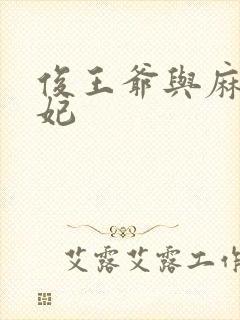 俊王爺與麻
妃
艾露艾露工作